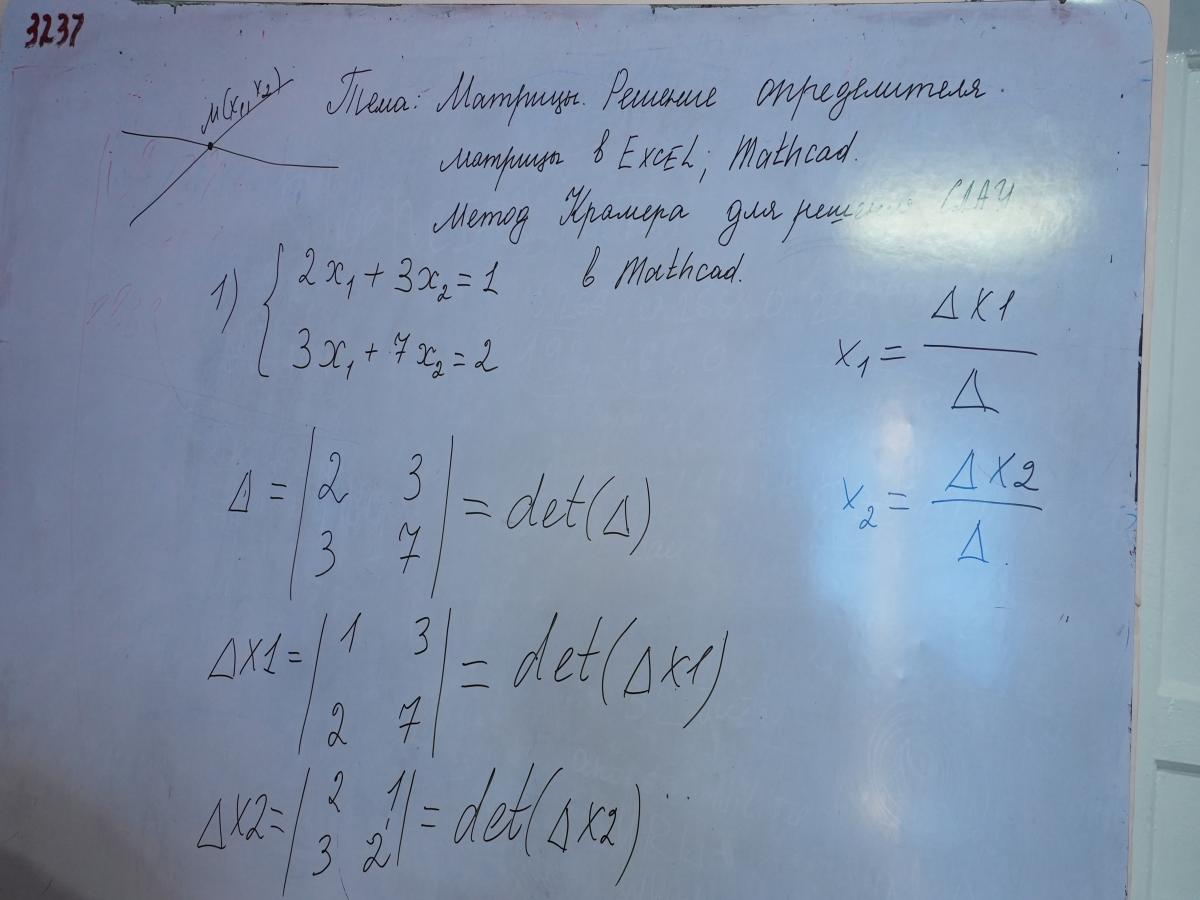 3237
M(x₁, x₂)
Тема: Матрицы. Решение определителя
матрицы в EXCEL; Mathcad.
Метод Крамера для решения СЛАУ
в Mathcad.
1) { 2x₁ + 3x₂ = 1
3x₁ + 7x₂ = 2
x₁ = Δx1 / Δ
x₂ = Δx2 / Δ
Δ = | 2 3 | = det(Δ)
3 7
Δx1 = | 1 3 | = det(Δx1)
2 7
Δx2 = | 2 1 | = det(Δx2)
3 2